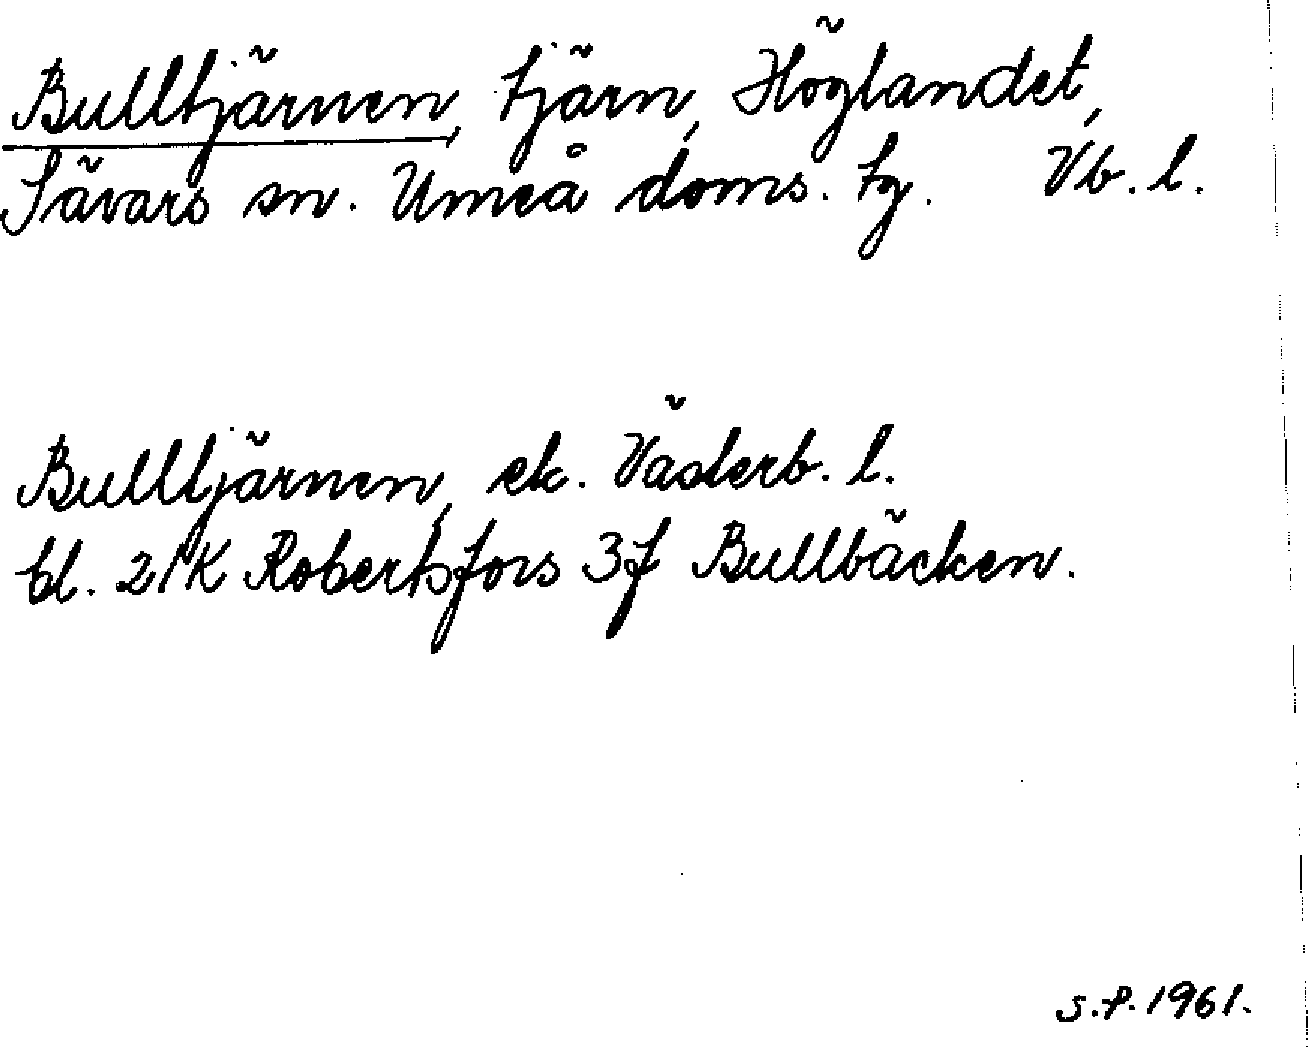 Bulltjärnen, tjärn, Höglandet,
Sävars sn. Umeå doms. tg. Vb. l.
Bulltjärnen, ek. Västerb. l.
bl. 21K Robertsfors 3f Bullbäcken.
S.P. 1961.